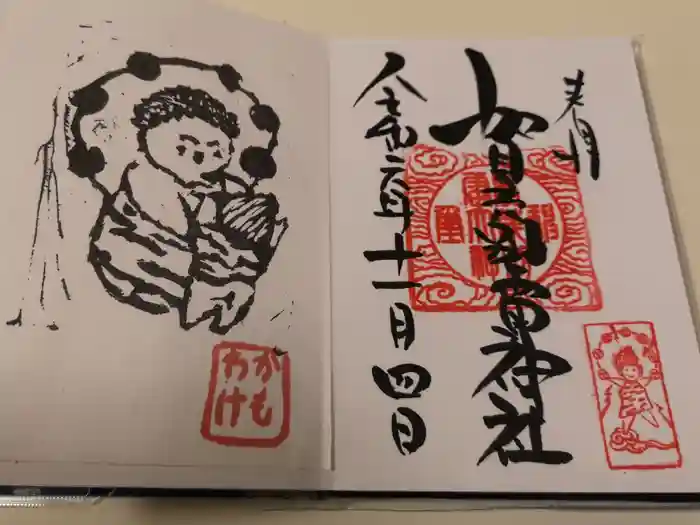 奉拝
賀茂別雷神社
令和二年十一月四日
かも
わけ